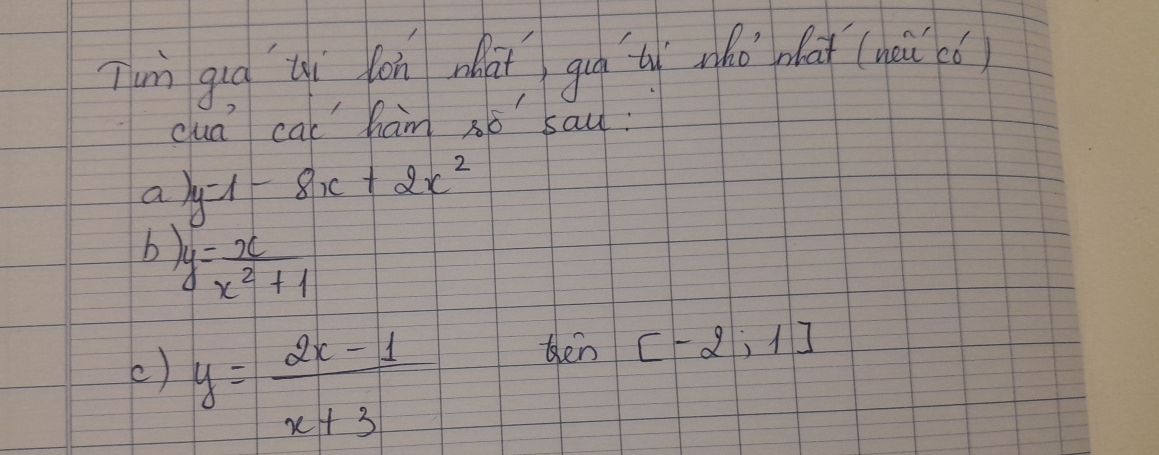 Tìm giá trị lớn nhất, giá trị nhỏ nhất (nếu có)
của các hàm số sau:
a) y=1 - 8x + 2x²
b) y = x / x² + 1
c) y = 2x - 1 / x + 3 trên [-2; 1]